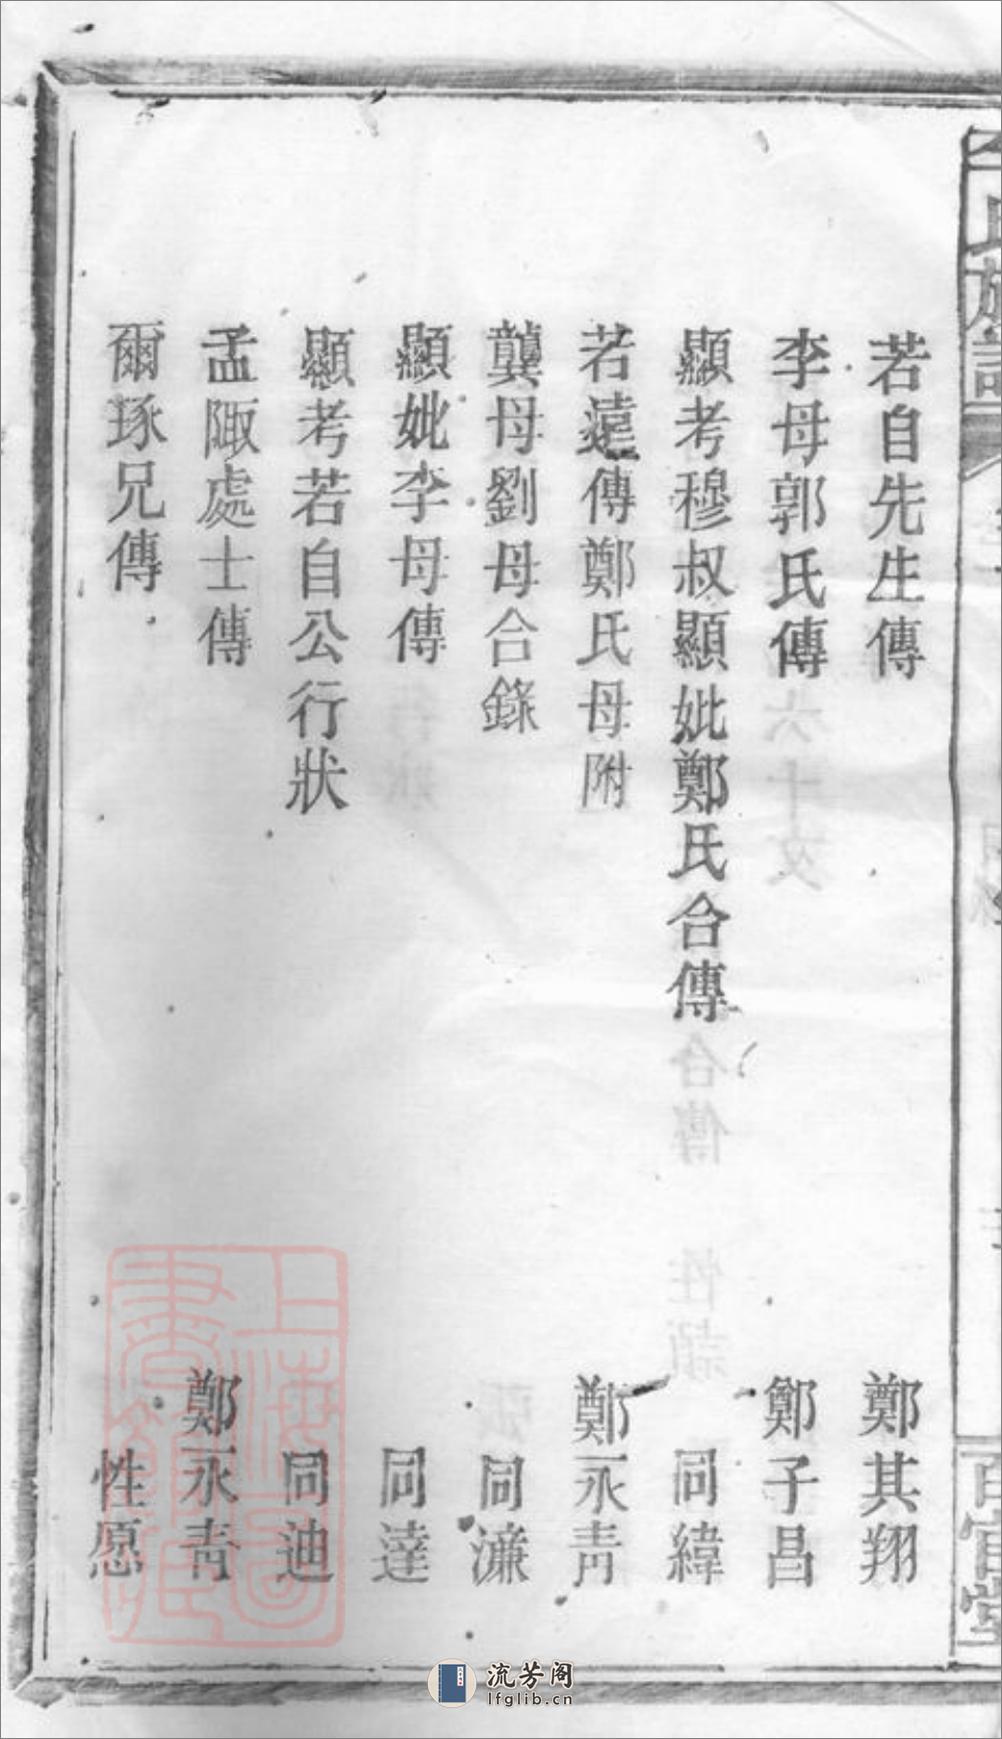 若自先生傳　鄭其翔
李母郭氏傳　鄭子昌
顯考穆叔顯妣鄭氏合傳　同緯
若遠傳鄭氏母附　鄭永青
龔母劉母合錄　同濂
顯妣李母傳　同達
顯考若自公行狀　同迪
孟陬處士傳　鄭永青
爾琢兄傳　性愿
氏族譜
百官堂
上海圖書館藏
流芳阁
lfglib.cn